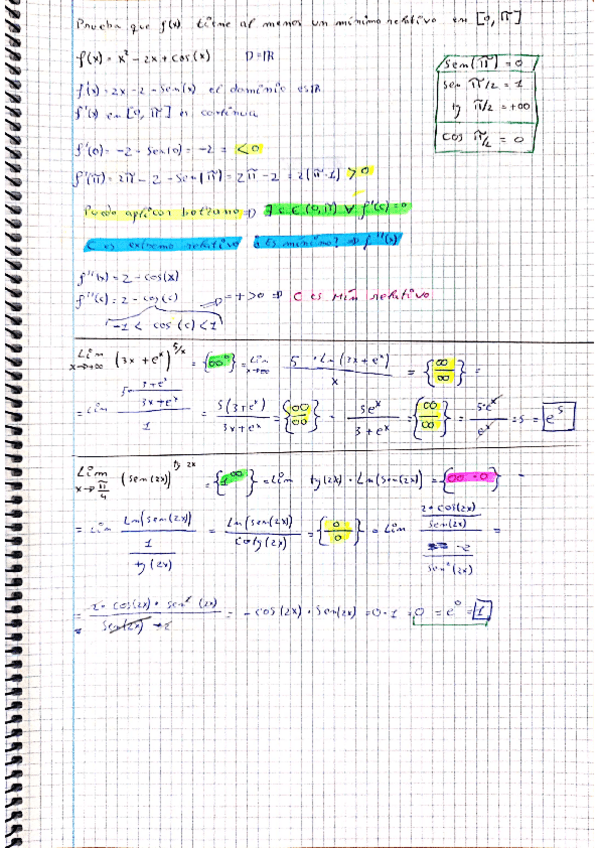 Prueba que f(x) tiene al menos un mínimo relativo en [0, π]
f(x) = x² - 2x + cos(x) D = ℝ
sen(π) = 0
sen π/2 = 1
tg π/2 = +∞
cos π/2 = 0
f'(x) = 2x - 2 - sen(x) el dominio es ℝ
f'(x) en [0, π] es continua
f'(0) = -2 - sen(0) = -2 = <0
f'(π) = 2π - 2 - sen(π) = 2π - 2 = 2(π-1) >0
Puedo aplicar bolzano ⇒ ∃ c ∈ (0, π) ∨ f'(c) = 0
C es extremo relativo ¿Es mínimo? ⇒ f''(x)
f''(x) = 2 - cos(x)
f''(c) = 2 - cos(c) ⇒ = + > 0 ⇒ C es Mín relativo
-1 < cos(c) < 1
Lim x→+∞ (3x + eˣ)^(5/x) = {∞⁰} = Lim x→∞ 5 · Ln(3x + eˣ) / x = {∞/∞} =
= Lim (5 · (3 + eˣ)/(3x + eˣ)) / 1 = 5(3 + eˣ) / (3x + eˣ) = {∞/∞} = 5eˣ / (3 + eˣ) = {∞/∞} = 5·eˣ / eˣ = 5 = e⁵
Lim x→π/4 (sen(2x))^(tg 2x) = {1^∞} = Lim tg(2x) · Ln(sen(2x)) = {∞ · 0} =
= Lim Ln(sen(2x)) / (1 / tg(2x)) = Ln(sen(2x)) / cotg(2x) = {0/0} = Lim (2 · cos(2x) / sen(2x)) / (-2 / sen²(2x)) =
= 2 · cos(2x) · sen²(2x) / (sen(2x) · -2) = - cos(2x) · sen(2x) = 0 · 1 = 0 = e⁰ = 1